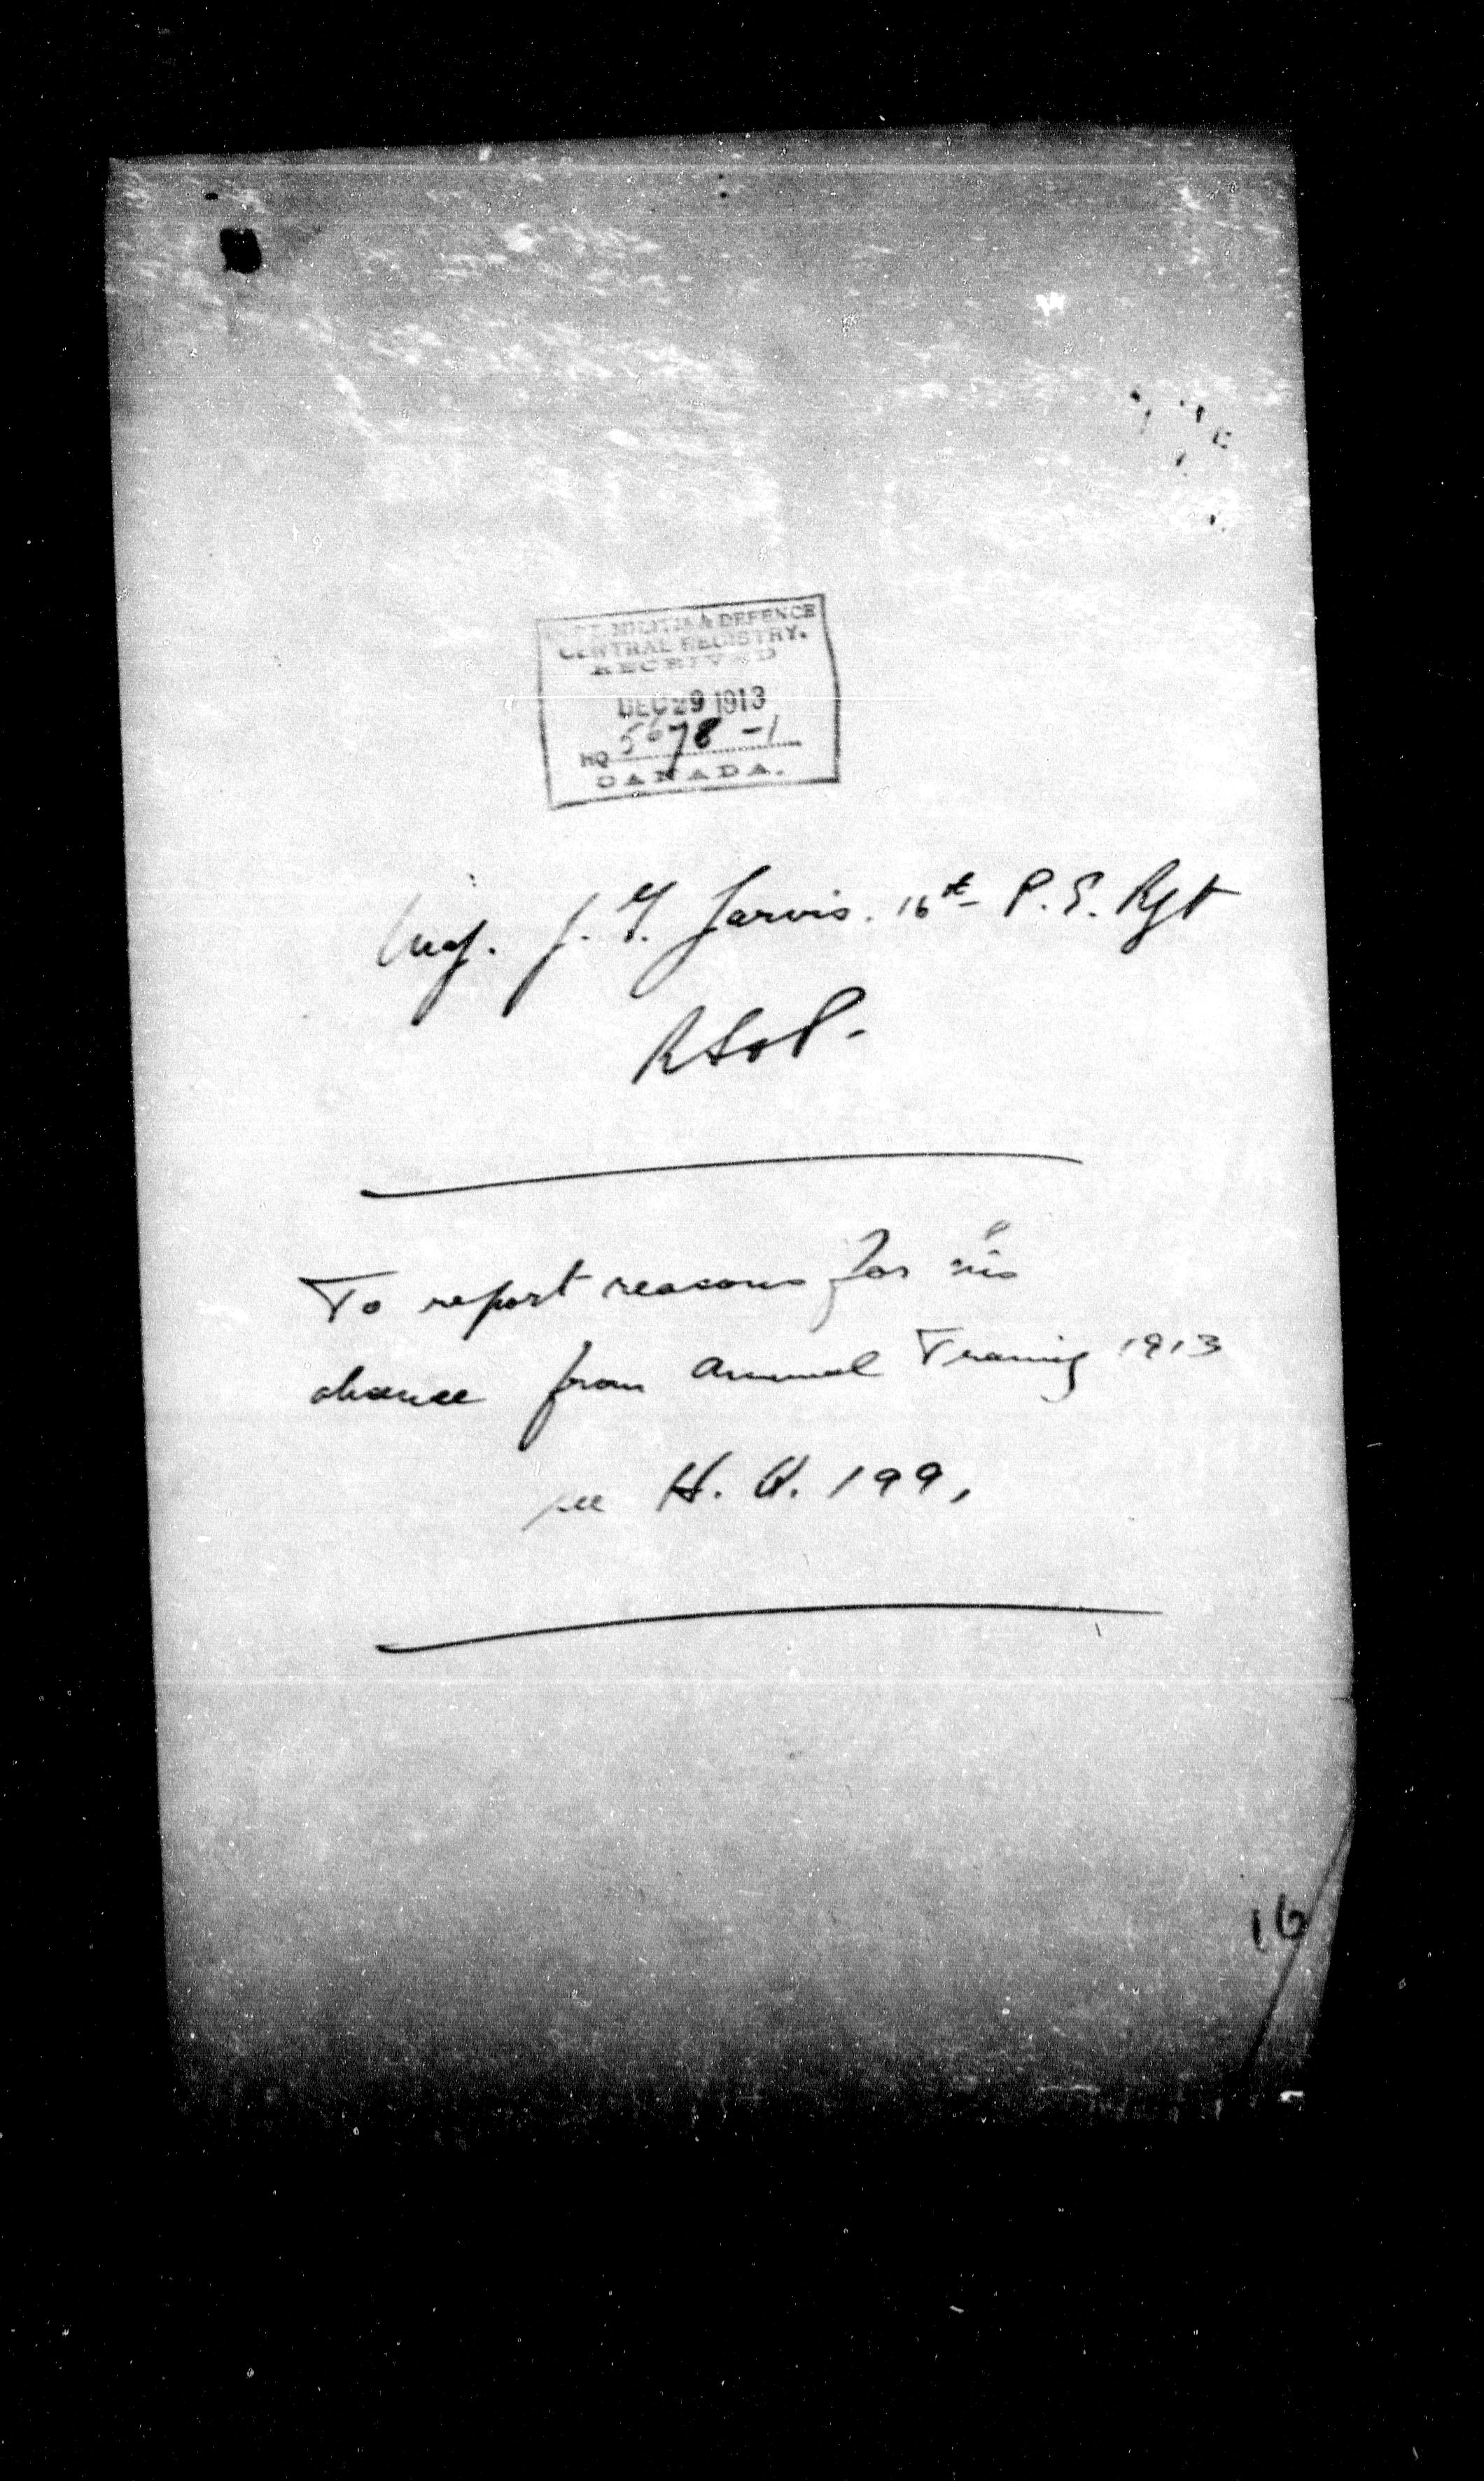 DEPT. MILITIA & DEFENCE
CENTRAL REGISTRY.
RECEIVED
DEC 29 1913
HQ 5678-1
CANADA.
Maj. J. Y. Jarvis. 16th P.E. Rgt
To report reasons for his
absence from Annual Training 1913
see H. Q. 199,
16